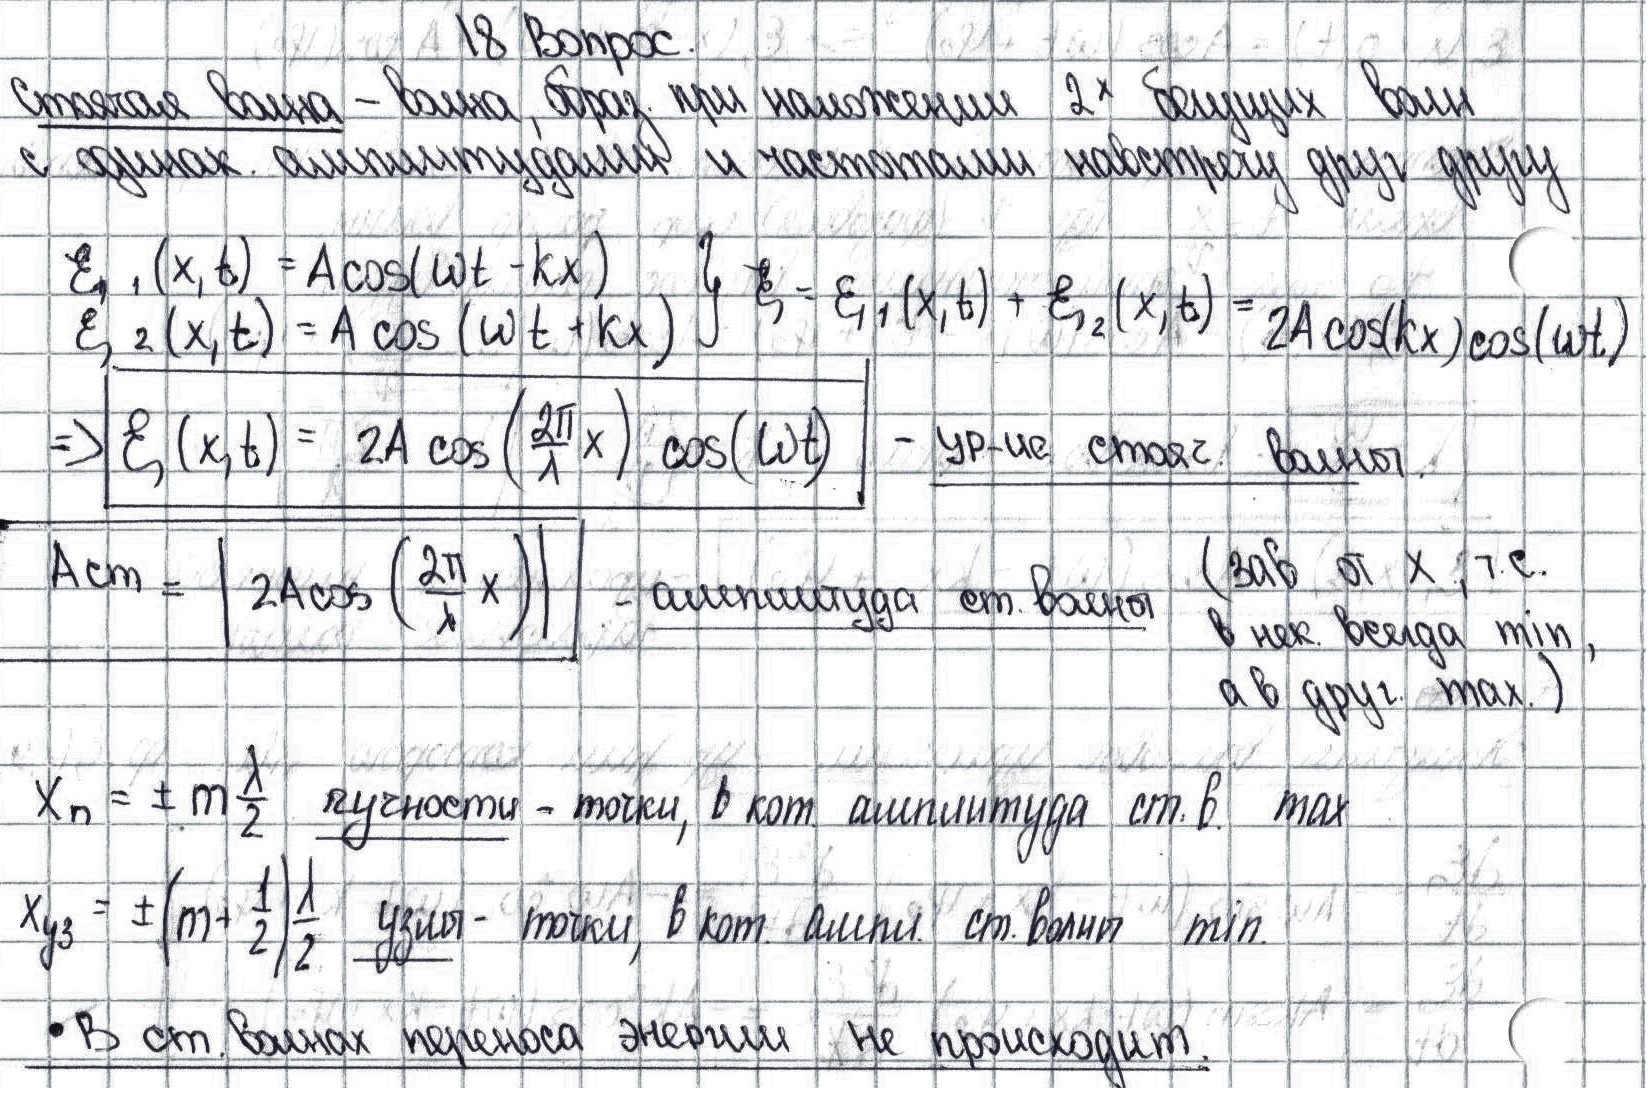 18 Вопрос.
Стоячая волна – волна, образ. при наложении 2х бегущих волн
с одинак. амплитудами и частотами навстречу друг другу
ξ₁(x,t) = A cos(ωt - kx) } ξ = ξ₁(x,t) + ξ₂(x,t) = 2A cos(kx) cos(ωt)
ξ₂(x,t) = A cos(ωt + kx)
=> ξ(x,t) = 2A cos(2π/λ x) cos(ωt) - ур-ие стояч. волны.
Aст = |2A cos(2π/λ x)| - амплитуда ст. волны (зав от x, т.е.
в нек. всегда min,
а в друг. max.)
xп = ± m λ/2 пучности - точки, в кот. амплитуда ст. в. max
xуз = ±(m + 1/2) λ/2 узлы - точки, в кот. ампл. ст. волны min.
• В ст. волнах переноса энергии не происходит.